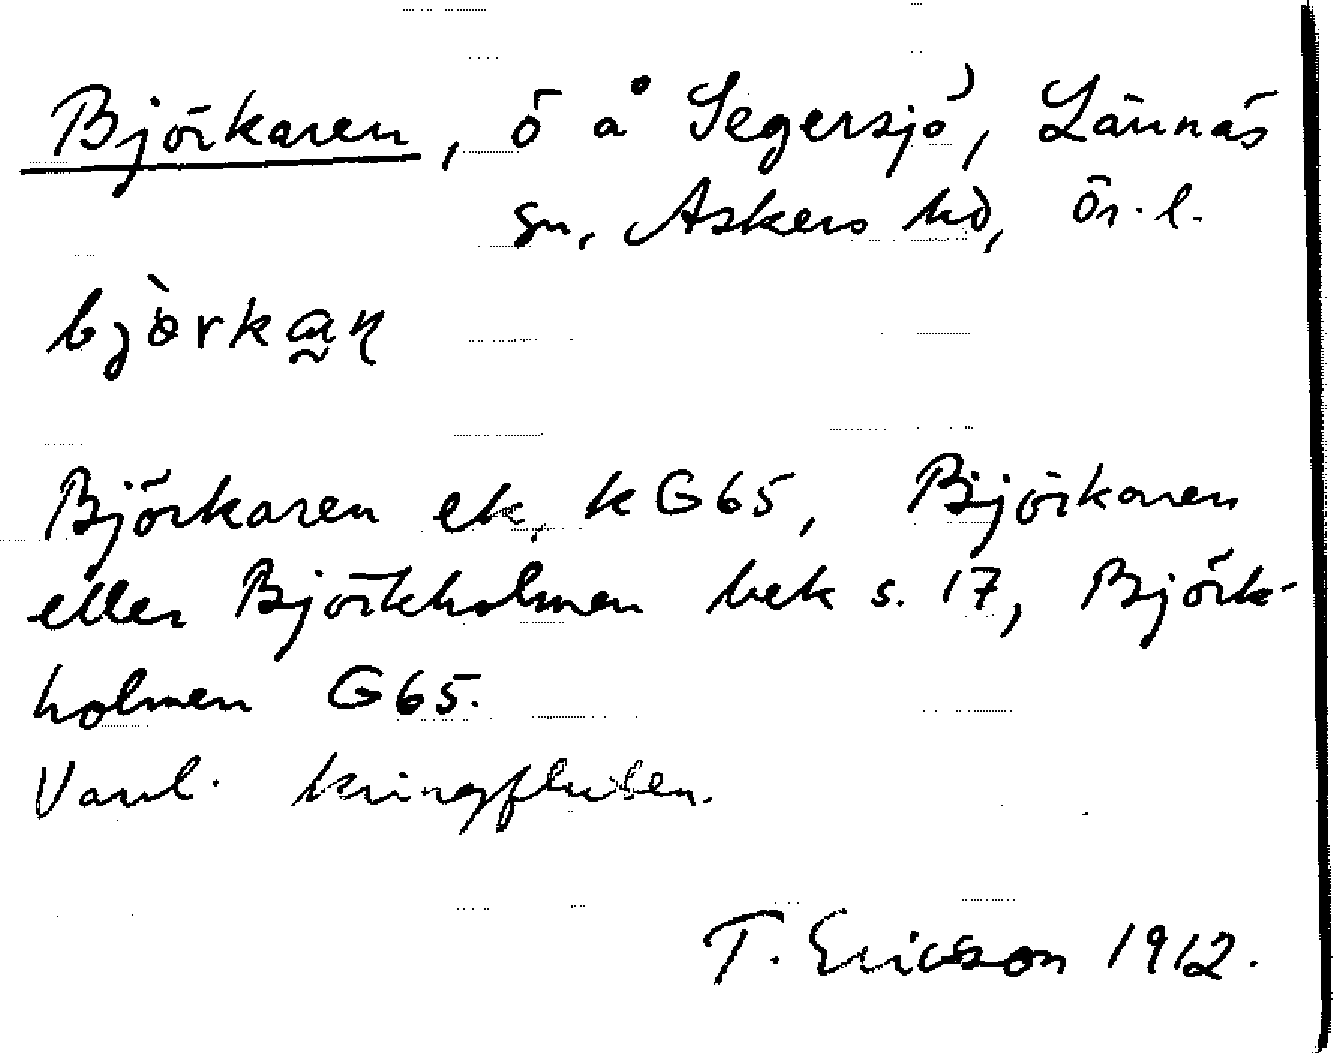 Björkaren, ö å Segersjö, Lännäs
sn, Askers hd, Ör. l.
bjòrkan
Björkaren ek, k G65, Björkaren
eller Björkholmen bek s. 17, Björk-
holmen G65.
Vanl. kringfluten.
T. Ericsson 1912.